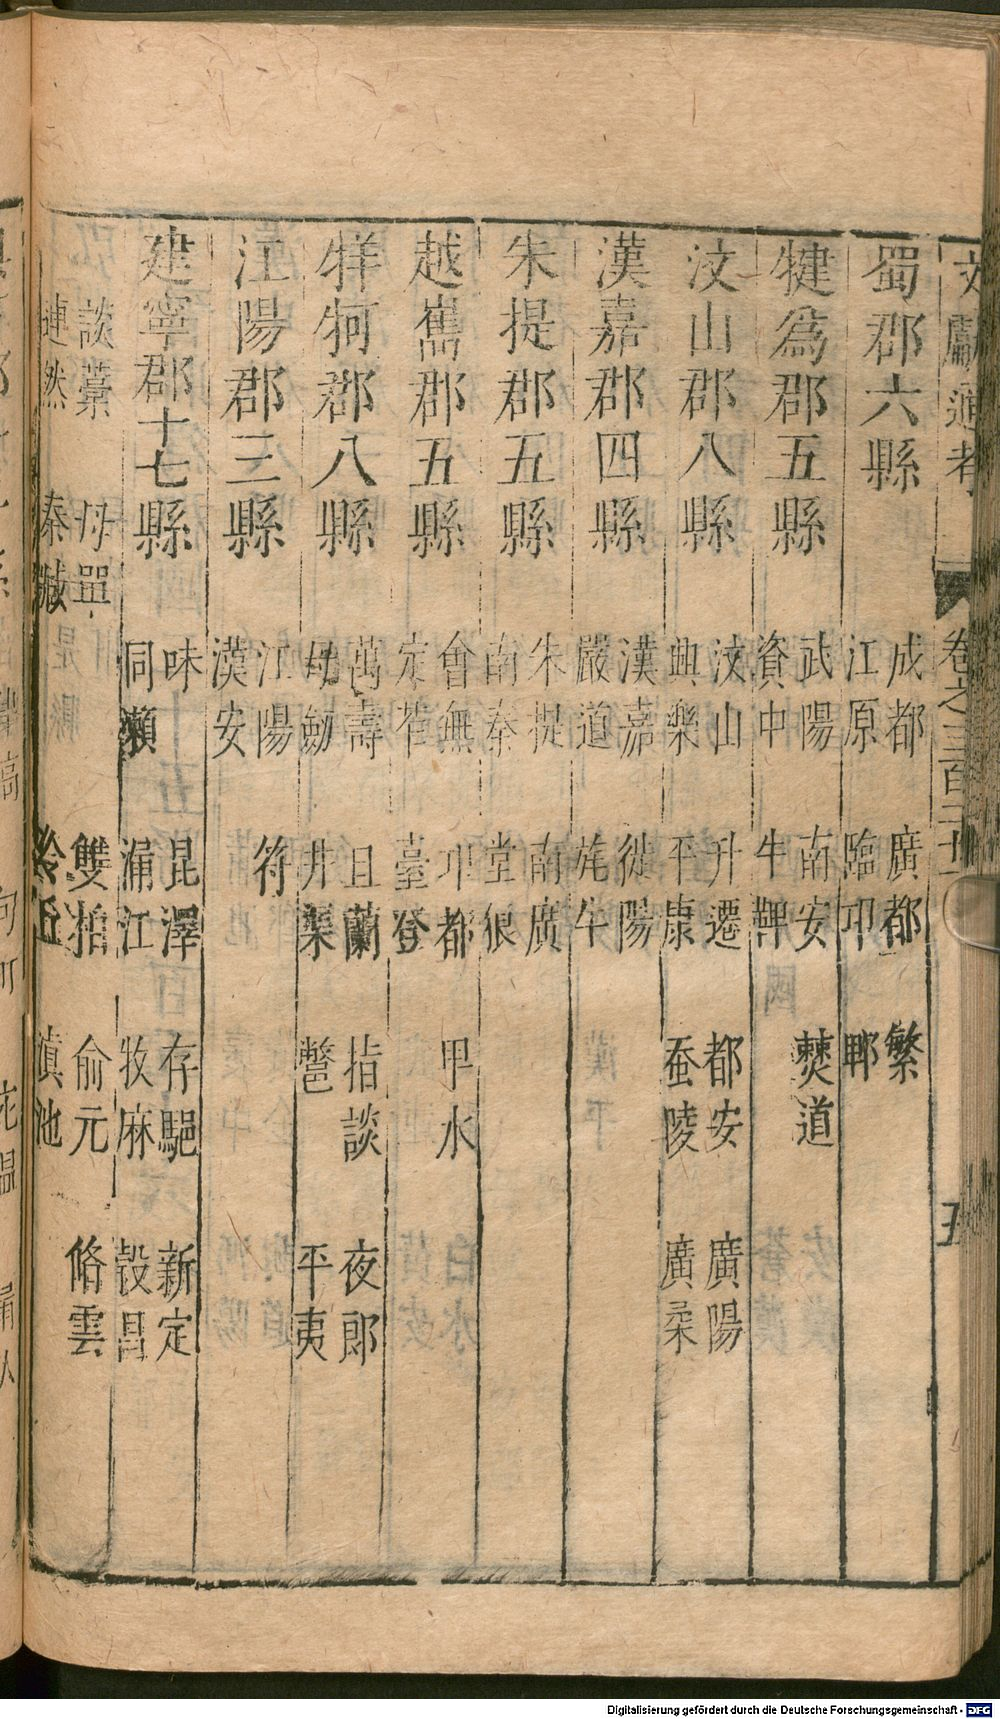 文獻通考 卷之三百二十 五
蜀郡六縣
成都 廣都 繁
江原 臨卭 郫
犍爲郡五縣
武陽 南安 僰道
資中 牛鞞
汶山郡八縣
汶山 升遷 都安 廣陽
興樂 平康 蚕陵 廣柔
漢嘉郡四縣
漢嘉 徙陽
嚴道 旄牛
朱提郡五縣
朱提 南廣
南秦 堂狼
越嶲郡五縣
會無 卭都 甲水
定莋 臺登
牂牁郡八縣
萬壽 且蘭 指談 夜郎
母劔 井渠 鷩 平夷
江陽郡三縣
江陽 符
漢安
建寧郡十七縣
味 昆澤 存䣕 新定
同瀬 漏江 牧麻 穀昌
談藁 母單 雙柏 俞元 脩雲
連然 秦臧 泠丘 滇池
Digitalisierung gefördert durch die Deutsche Forschungsgemeinschaft - DFG